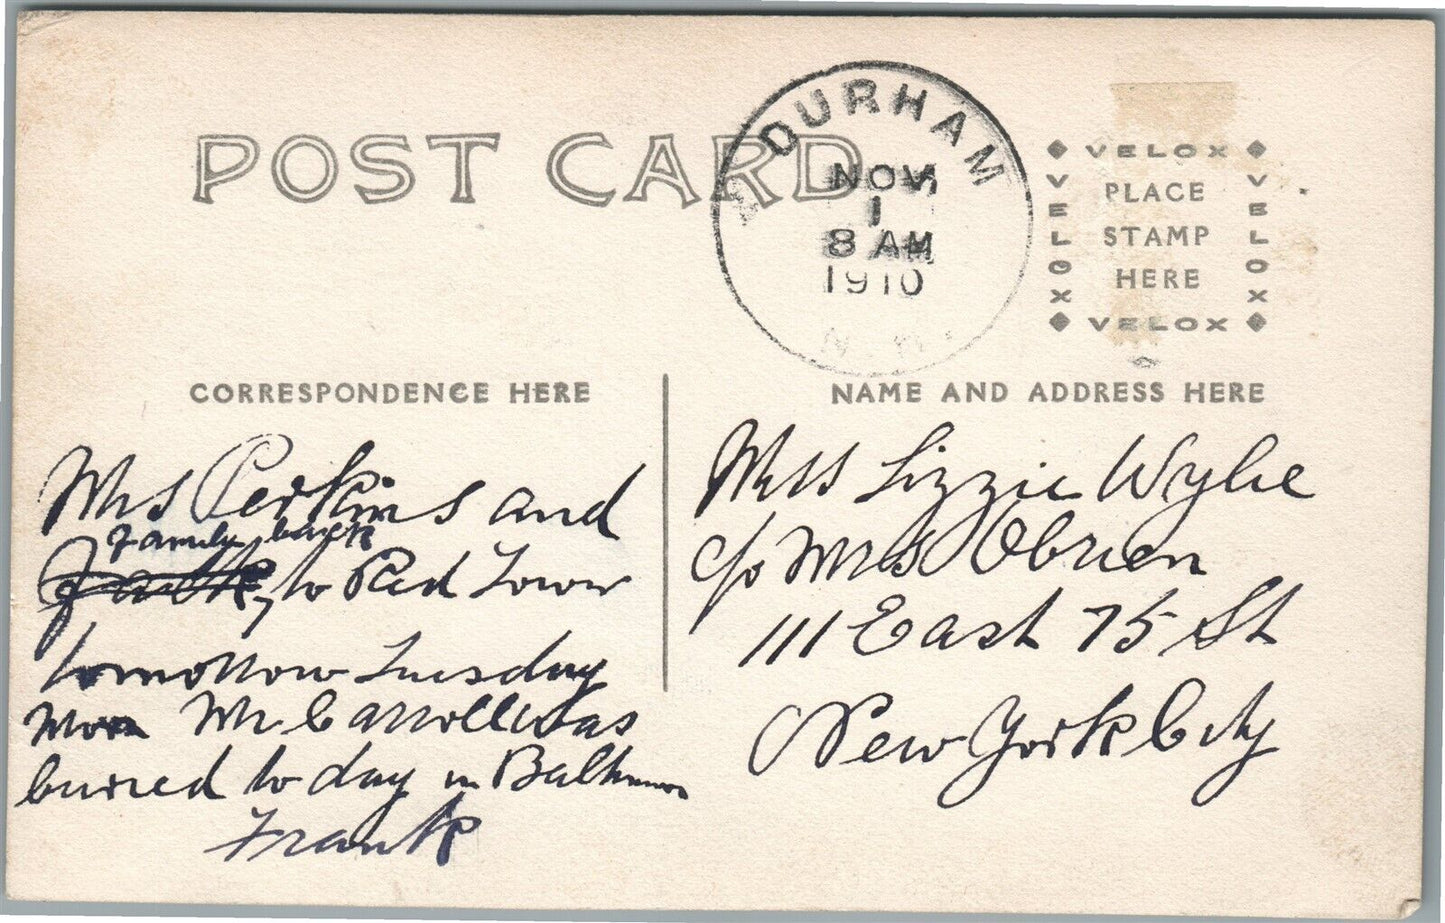 POST CARD
DURHAM
NOV
1
8 AM
1910
N.H.
VELOX
VELOX
PLACE
STAMP
HERE
VELOX
VELOX
CORRESPONDENCE HERE
NAME AND ADDRESS HERE
Mrs Perkins and
family back
to Red Tower
tomorrow Tuesday
Mr Carroll was
buried to day in Baltimore
Frank
Miss Lizzie Wylie
c/o Mrs Obrien
111 East 75 St
New York City